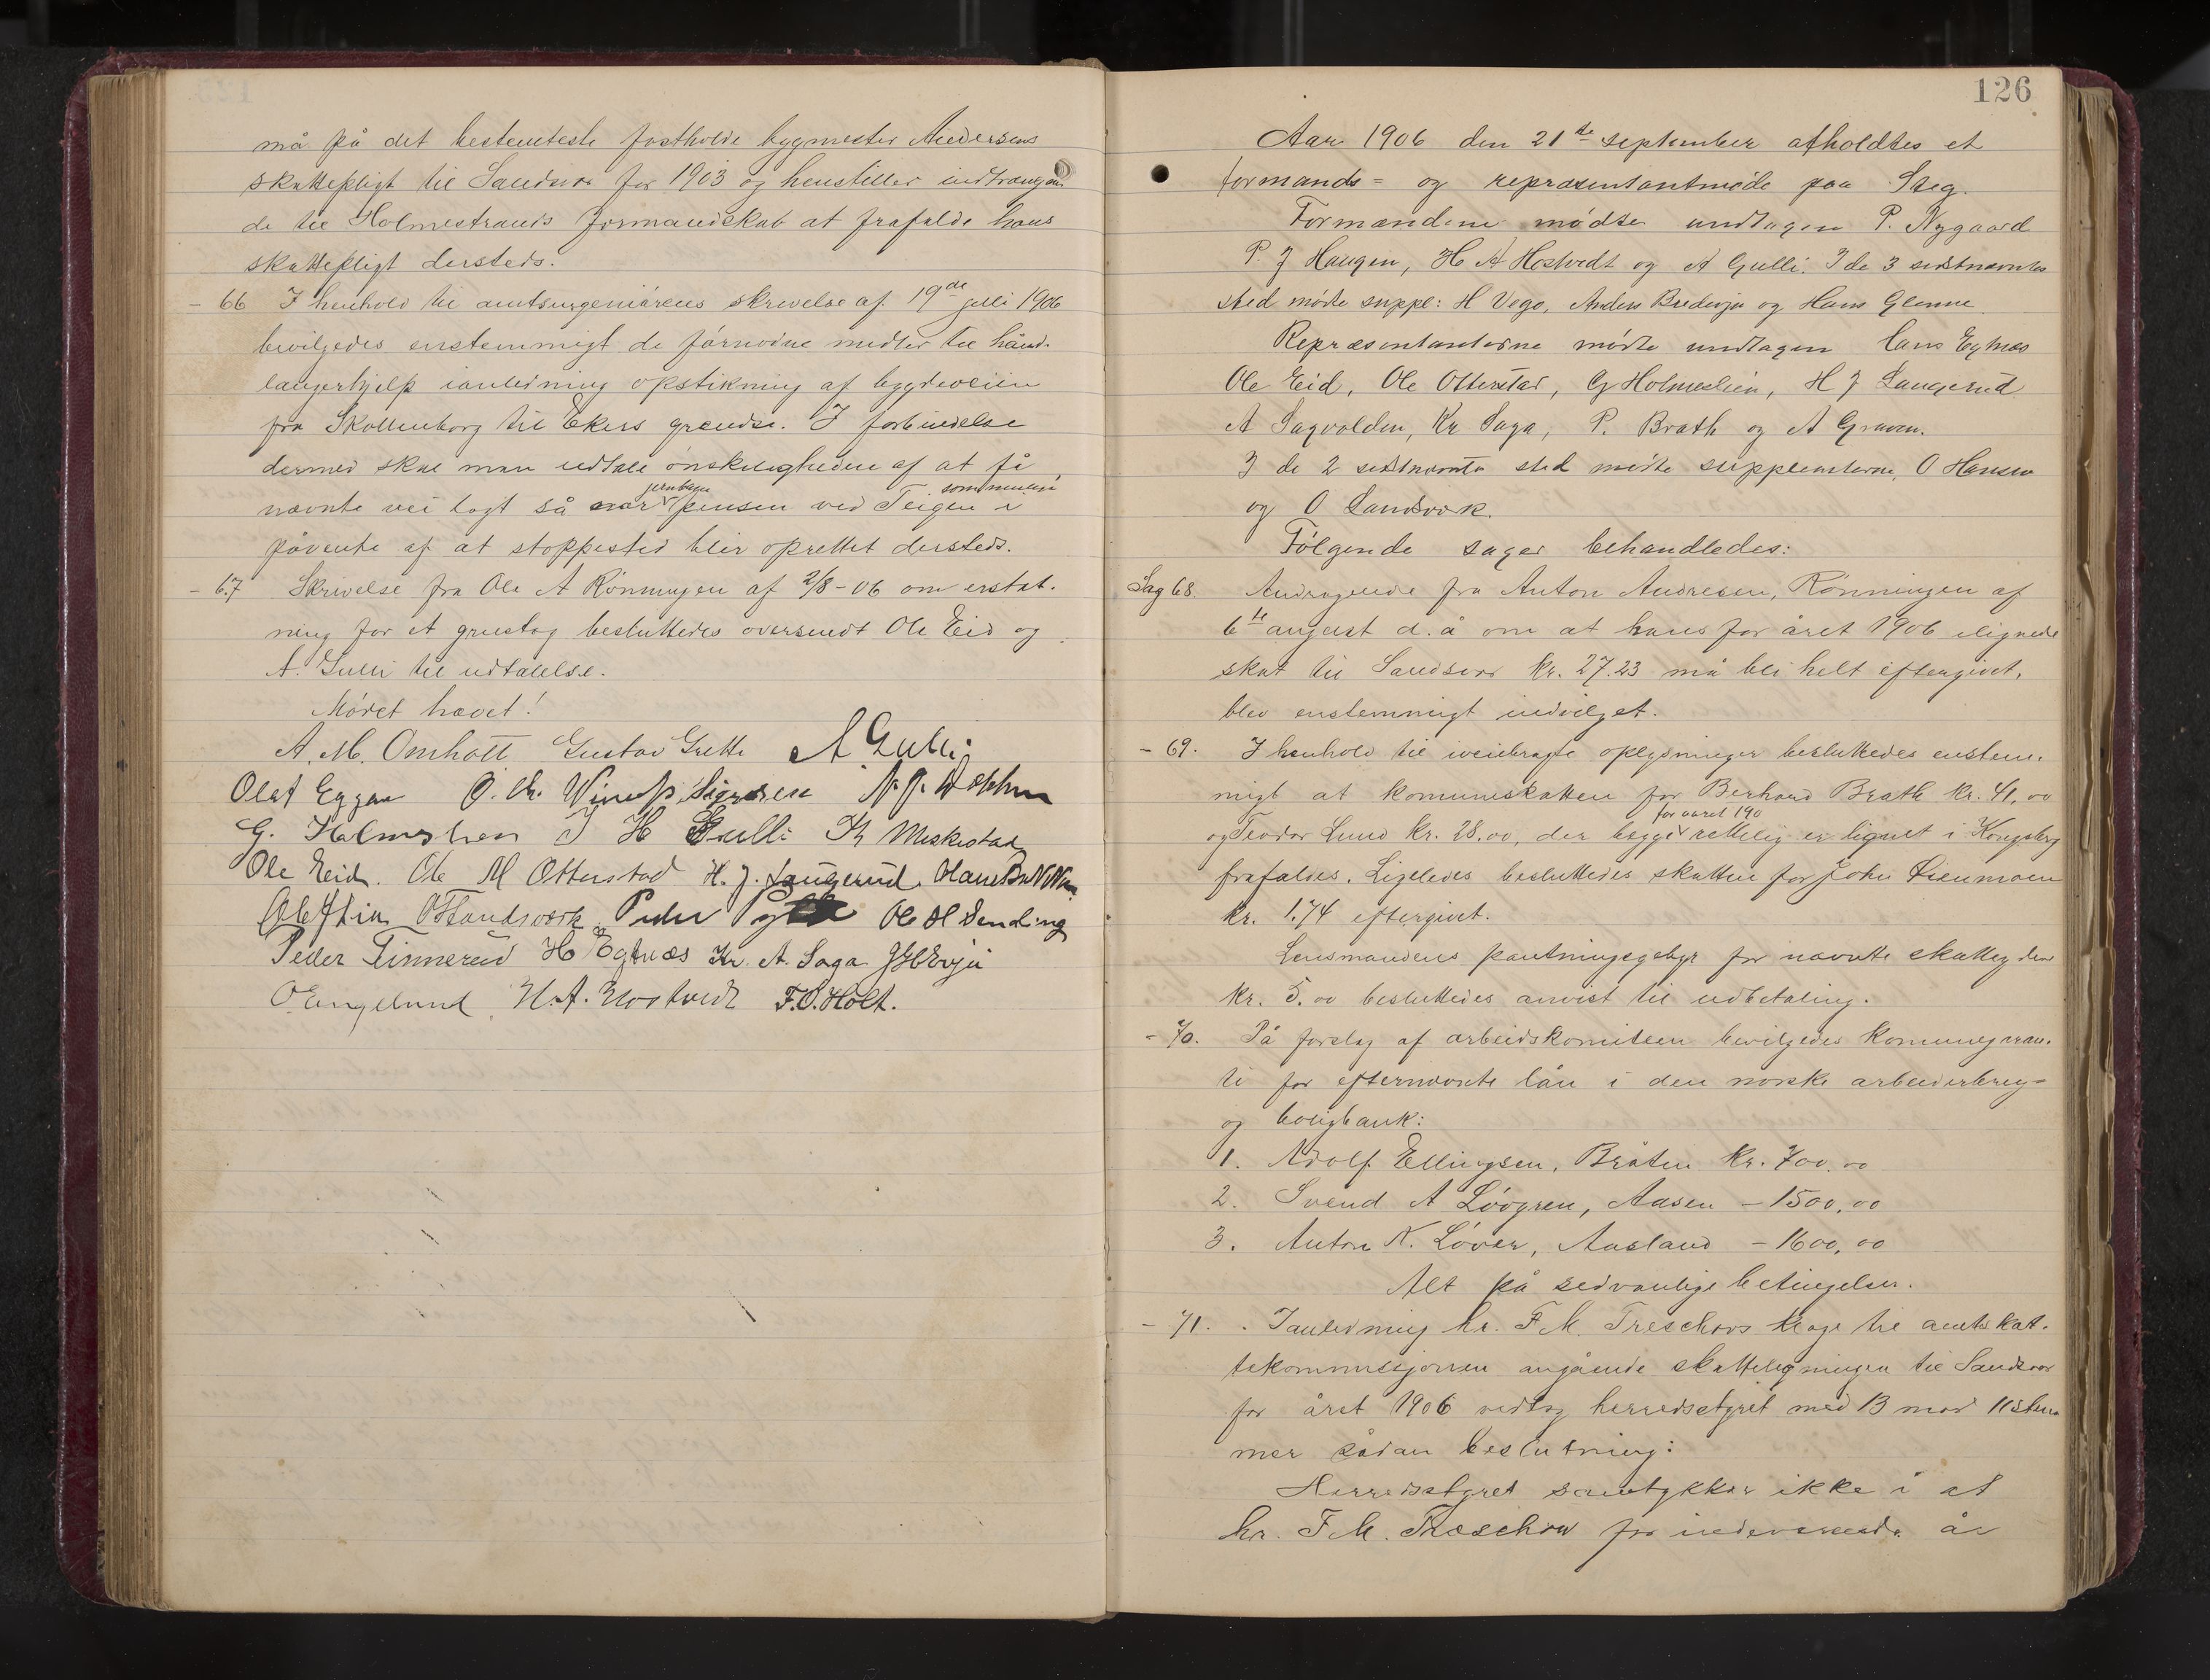 må på det bestemteste fastholde bygmester Andersens
skattepligt til Sandsvær for 1903 og henstiller indtrængen-
de til Holmestrands formandskab at frafalde hans
skattepligt dersteds.
- 66 I henhold til amtsingeniørens skrivelse af 19de juli 1906
bevilgedes enstemmigt de fornødne midler til hånd-
langerhjelp ianledning opstikning af bygdeveien
fra Skollenborg til Ekers grændse. I forbindelse
dermed skal man udtale ønskeligheden af at få
jernbane som muligt
nævnte vei lagt så nær pensen ved Teigen i
påvente af at stoppested blir oprettet dersteds.
- 67 Skrivelse fra Ole A Rønningen af 2/8-06 om erstat-
ning for et grustag besluttedes oversendt Ole Eid og
A. Gulli til udtalelse.
Mødet hævet!
A. M. Omholt Gustav Grette A Gulli
Olaf Eggar O. Chr. Winup
G. Holmslien I H Gulli Kr Meskestad
Ole Eid. Ole M Otterstad H. J. Langerud
O Landsværk Peder Ole H Sending
Peder Finnerud H Eglnæs Kr. A. Saga
O Engelund H. A. Hostvedt F.O. Holt.
126
Aar 1906 den 21de september afholdtes et
formands= og repræsentantmøde paa Steg.
Formændene mødte undtagen P. Nygaard
P. J Haugen, H A Hostvedt og A Gulli. I de 3 sidstnævntes
sted mødte suppl: H Vego, Anders Bredesju og Hans Glenne
Repræsentanterne mødte undtagen Hans Eglnæs
Ole Eid, Ole Otterstad, G Holmslien, H J Langerud
A Sagvolden, Kr Saga, P. Brath og A Graven.
I de 2 sidstnævnte sted mødte suppleanterne, O Hansen
og O Landsværk.
Følgende sager behandledes:
Sag 68. Andragende fra Anton Andresen, Rønningen af
6te august d. å om at hans for året 1906 ilignede
skat til Sandsvær kr. 27.23 må bli helt eftergivet,
blev enstemmigt indvilget.
- 69. I henhold til iveiebragte oplysninger besluttedes enstem-
migt at kommuneskatten for Berhard Brath kr. 41,00
for aaret 190
og Teodor Lund kr. 28.00, der begge rettelig er lignet i Kongsberg
frafaldes. Ligeledes besluttedes skatten for John Lienmoen
kr. 1.74 eftergivet.
Lensmandens pantningsgebyr for nævnte skatteydere
kr. 5.00 besluttedes anvist til udbetaling.
- 70. På forslag af arbeidskomiteen bevilgedes kommunegaran-
ti for efternævnte lån i den norske arbeiderbrug=
og boligbank:
1. Adolf Ellingsen, Bråten Kr. 700.00
2. Svend A Løvgren, Aasen - 1500,00
3. Anton K. Løver, Aasland - 1600,00
Alt på sedvanlige betingelser.
- 71. Ianledning hr. F M. Treschows klage til amtskat-
tekommissjonen angående skatteligningen til Sandsvær
for året 1906 vedtog herredsstyret med 13 mod 11 stem
mer sådan beslutning:
Herredsstyret samtykker ikke i at
hr. F M. Træschow for indeværende år